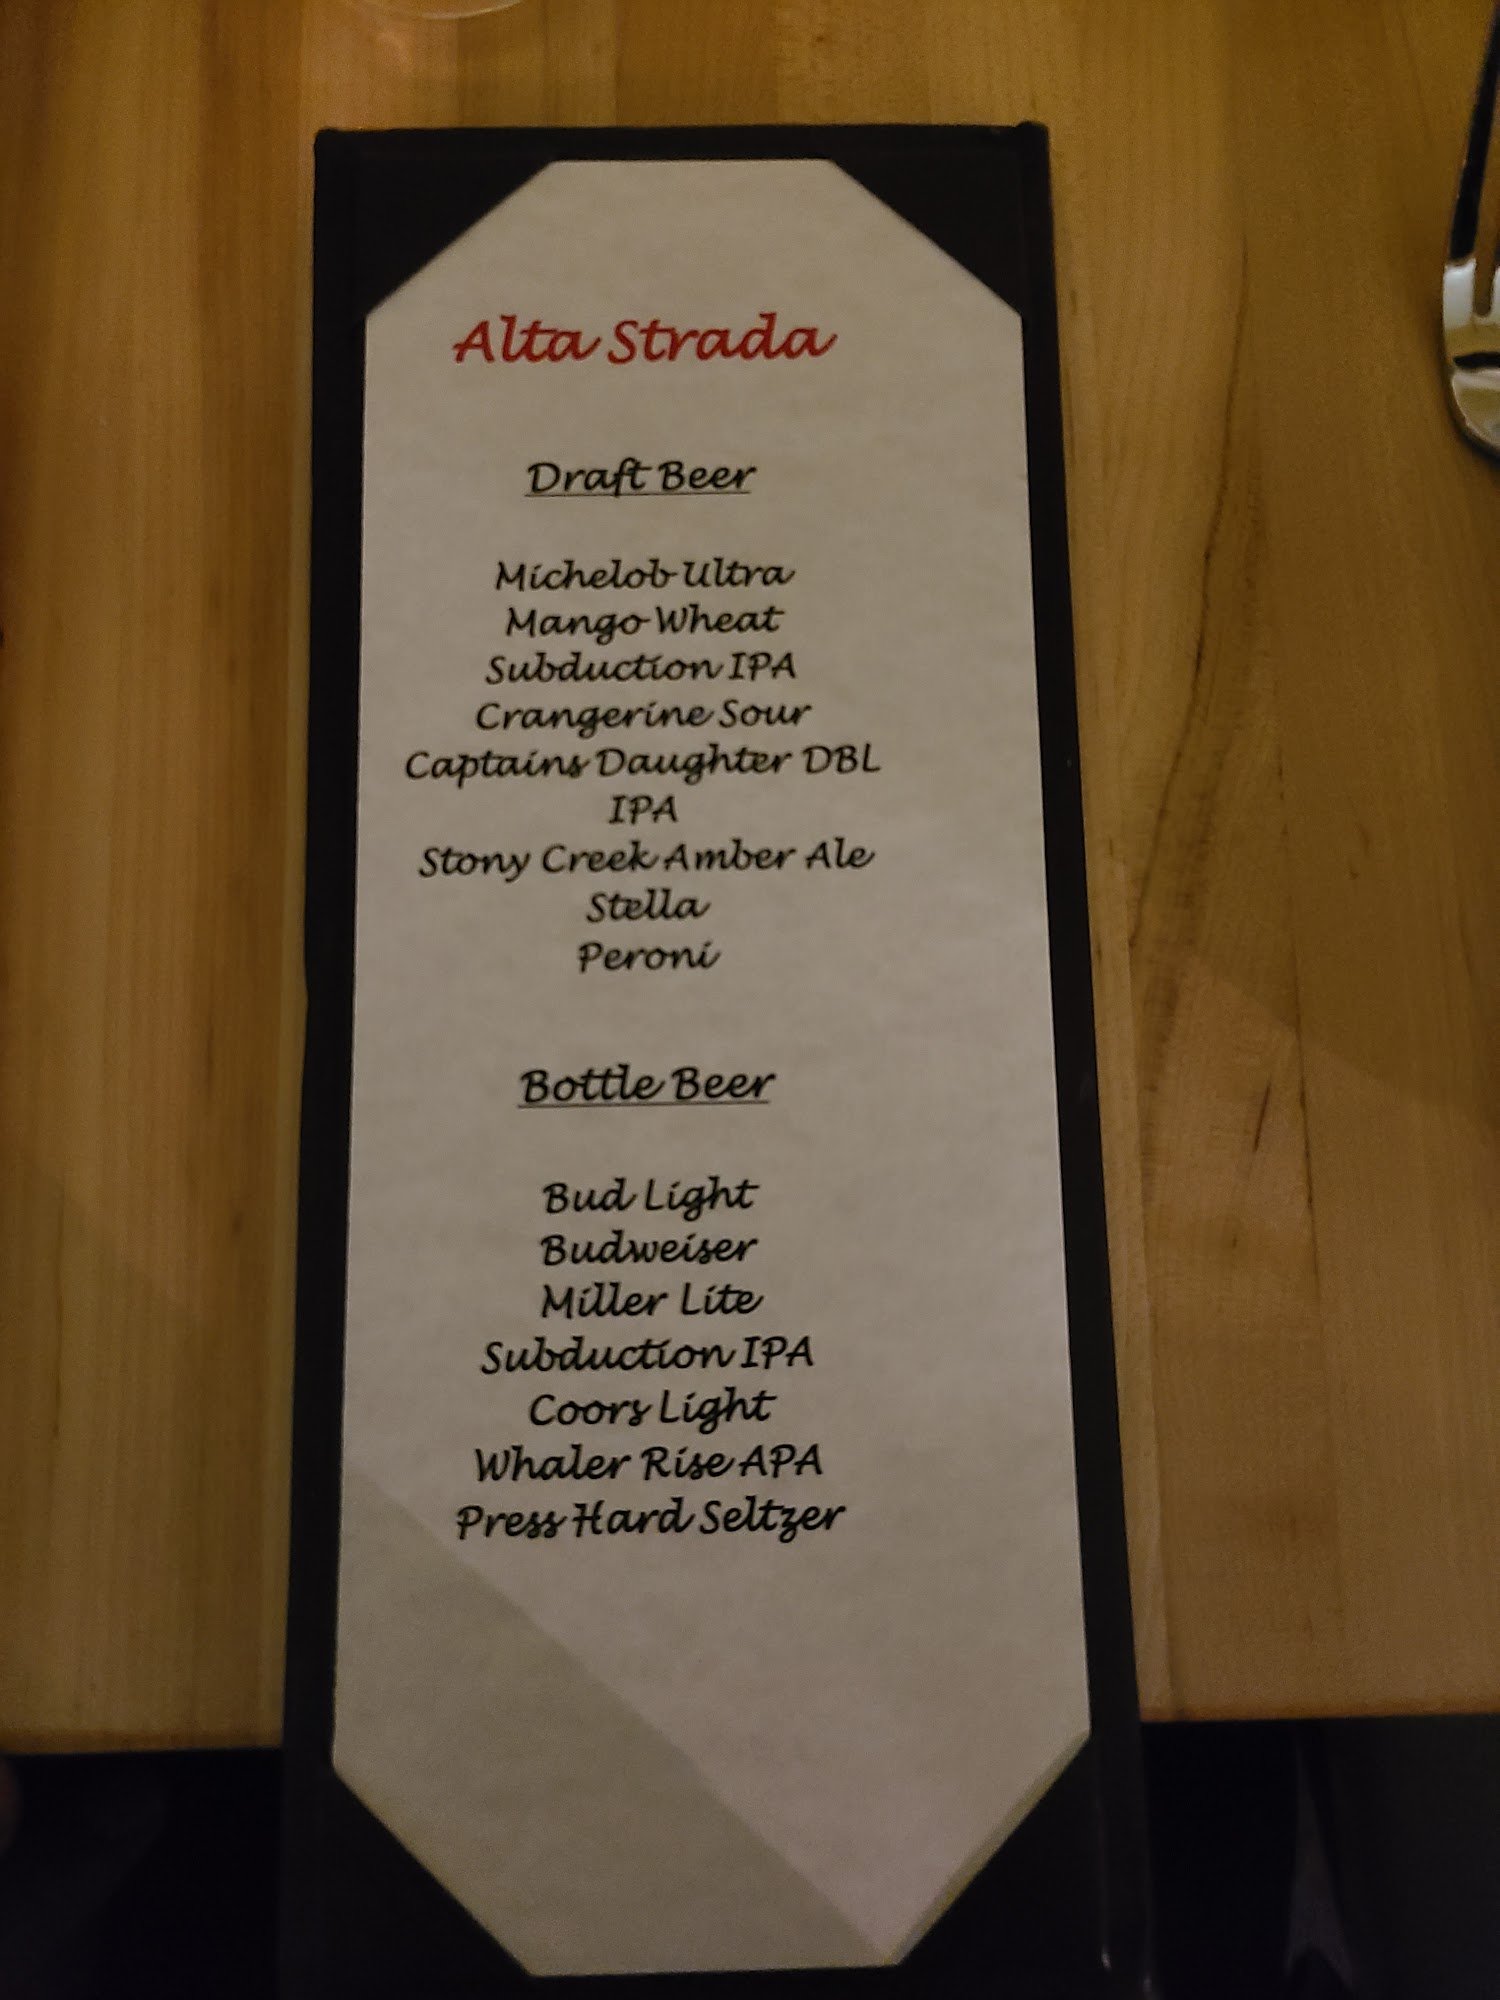 Alta Strada
Draft Beer
Michelob Ultra
Mango Wheat
Subduction IPA
Crangerine Sour
Captains Daughter DBL
IPA
Stony Creek Amber Ale
Stella
Peroni
Bottle Beer
Bud Light
Budweiser
Miller Lite
Subduction IPA
Coors Light
Whaler Rise APA
Press Hard Seltzer